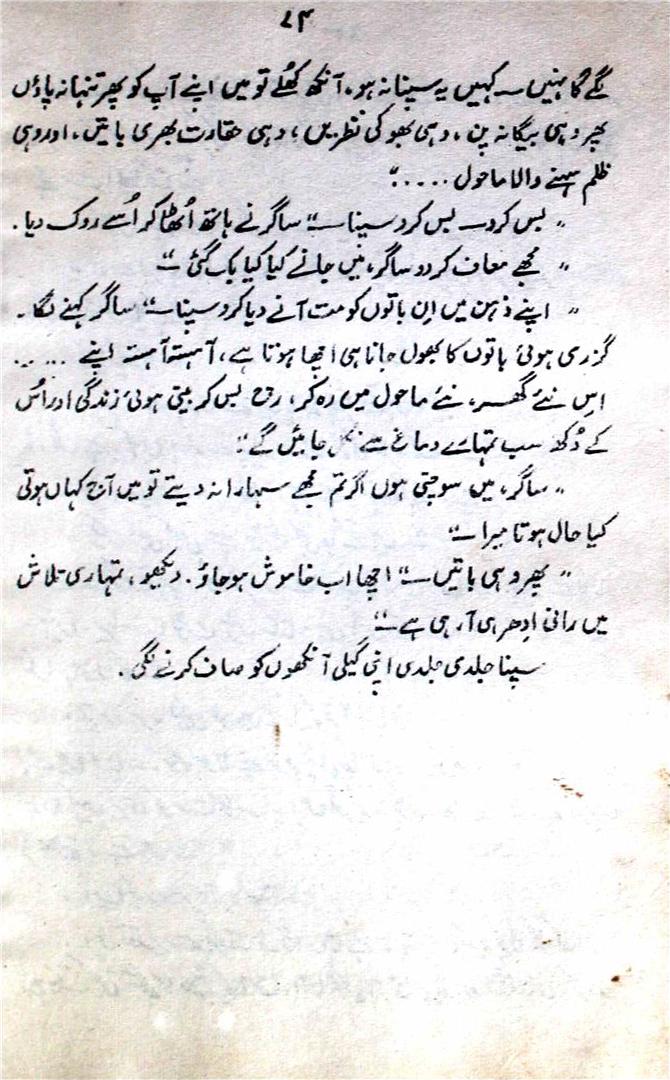 ۷۴
گے گا نہیں — کہیں یہ سپنا نہ ہو، آنکھ کُھلے تو میں اپنے آپ کو پھر تنہا نہ پاؤں
پھر وہی بیگانہ پن، وہی بھوکی نظریں، وہی حقارت بھری باتیں، اور وہی
ظلم سہنے والا ماحول....."
" بس کرو — بس کرو سپنا —" ساگر نے ہاتھ اُٹھا کر اُسے روک دیا.
" مجھے معاف کردو ساگر، میں جانے کیا کیا بک گئی —"
" اپنے ذہن میں اِن باتوں کو مت آنے دیا کرو سپنا —" ساگر کہنے لگا.
گزری ہوئی باتوں کا بھول جانا ہی اچھا ہوتا ہے، آہستہ آہستہ اپنے .....
اِس نئے گھر، نئے ماحول میں رہ کر، رچ بس کر بیتی ہوئی زندگی اور اُس
کے دُکھ سب تمہارے دماغ سے نکل جائیں گے."
" ساگر، میں سوچتی ہوں اگر تم مجھے سہارا نہ دیتے تو میں آج کہاں ہوتی
کیا حال ہوتا میرا —"
" پھر وہی باتیں —" اچھا اب خاموش ہو جاؤ. دیکھو، تمہاری تلاش
میں رانی اِدھر ہی آرہی ہے —"
سپنا جلدی جلدی اپنی گیلی آنکھوں کو صاف کرنے لگی.